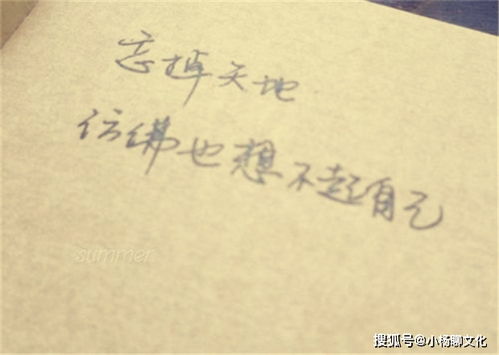 忘掉天地
仿佛也想不起自己
summer
搜狐号@小杨聊文化